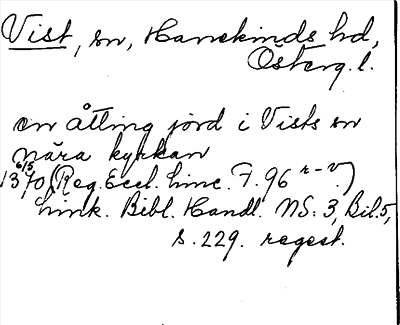 Vist, sn, Hanekinds hd,
Österg. l.
en åtting jord i Vists sn
nära kyrkan
6/5
1370 (Reg. Eccl. Linc. F. 96 r-v.)
Link. Bibl. Handl. NS: 3, Bil. 5,
s. 229. regest.